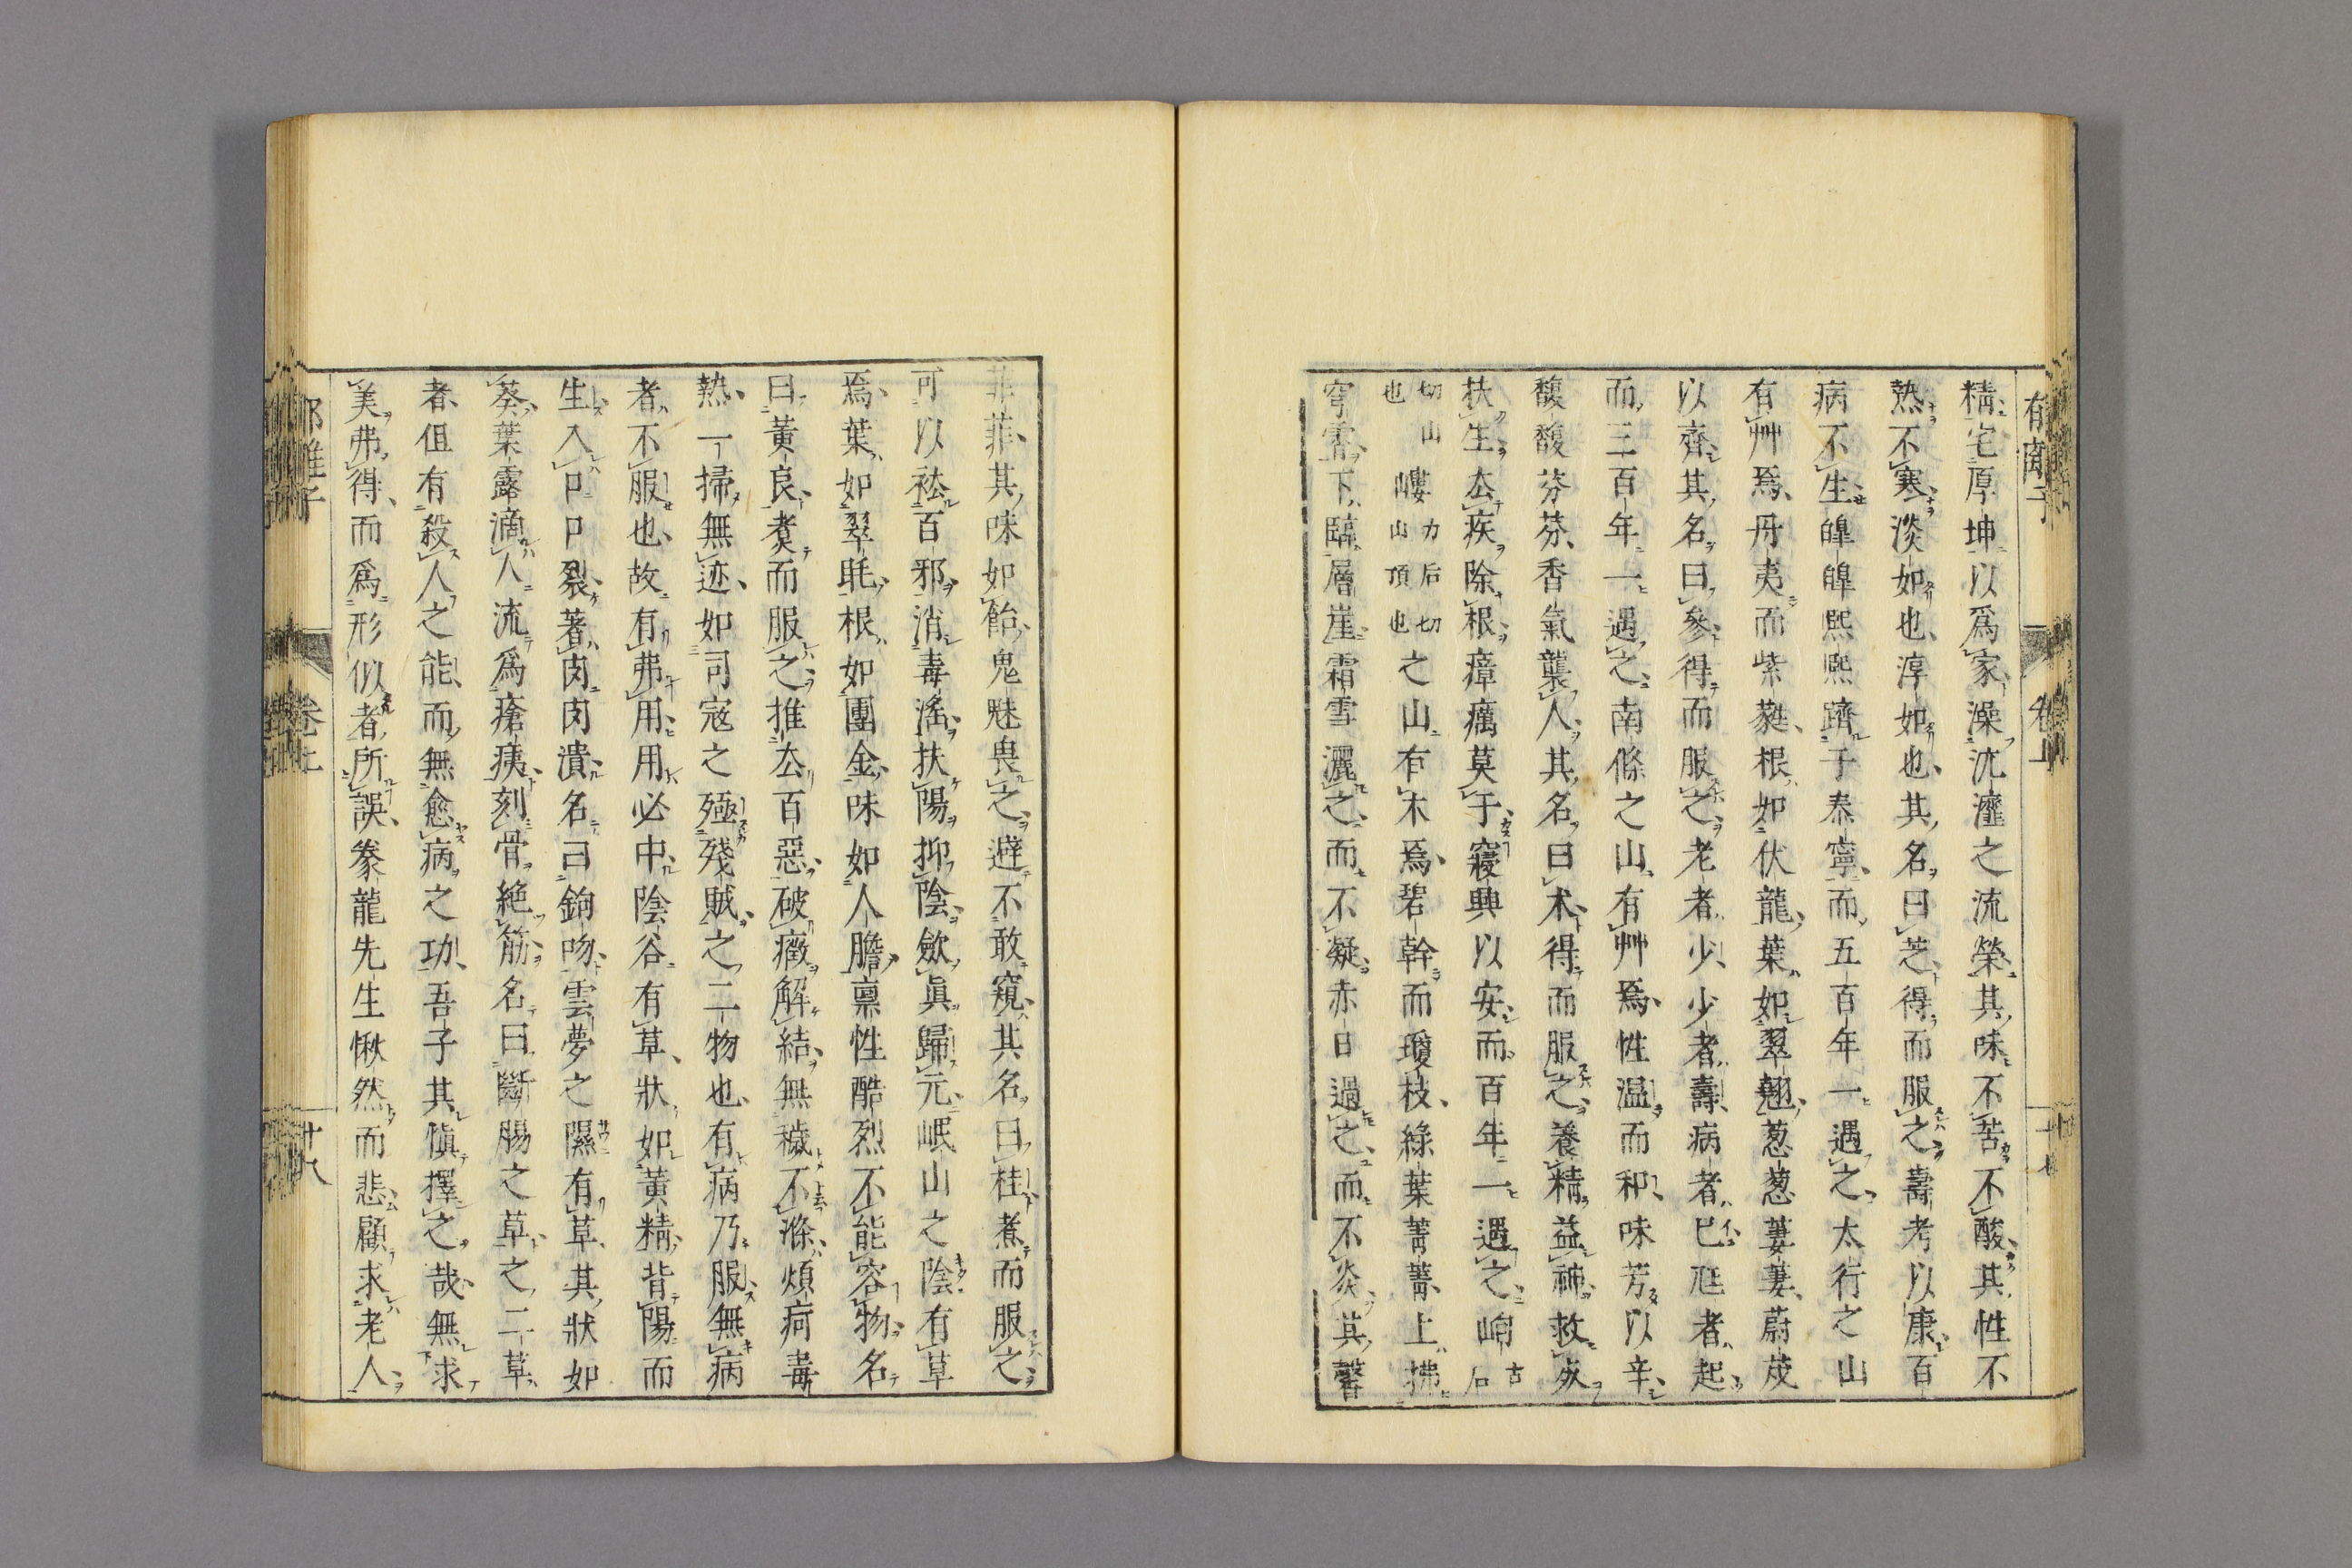 郁離子 卷上 十七
精宅厚坤以爲家澡沆瀣之流榮其味不苦不酸其性不
熱不寒淡如也淳如也其名曰芝得而服之壽考以康百
病不生皥皥熙熙躋于泰寧而五百年一遇之太行之山
有艸焉丹荑而紫蕤根如伏龍葉如翠翹葱葱萋萋蔚茂
以齊其名曰參得而服之老者少少者壽病者已尫者起
而三百年一遇之南條之山有艸焉性温而和味芳以辛
馥馥芬芬香氣襲人其名曰术得而服之養精益神救夾
扶生去疾除根瘴癘莫干寢興以安而百年一遇之岣古后
切山也嶁力后切山頂也之山有木焉碧幹而瓊枝綠葉菁菁上拂
穹霄下臨層崖霜雪灑之而不凝赤日過之而不炎其馨
菲菲其味如飴鬼魅畏之避不敢窺其名曰桂煮而服之
可以袪百邪消毒滛扶陽抑陰歛眞歸元岷山之陰有草
焉葉如翠眊根如團金味如人膽稟性酷烈不能容物名
曰黃良煑而服之推去百惡破癥解結無穢不滌煩疴毒
熱一掃無迹如司寇之殛殘賊之二物也有病乃服無病
者不服也故有弗用用必中陰谷有草狀如黃精背陽而
生入口口裂著肉肉潰名曰鉤吻雲夢之隰有草其狀如
葵葉露滴人流爲瘡痍刻骨絕筋名曰斷腸之草之二草
者但有殺人之能而無愈病之功吾子其愼擇之哉無求
美弗得而爲形似者所誤豢龍先生愀然而悲顧求老人
郁離子 卷上 十八